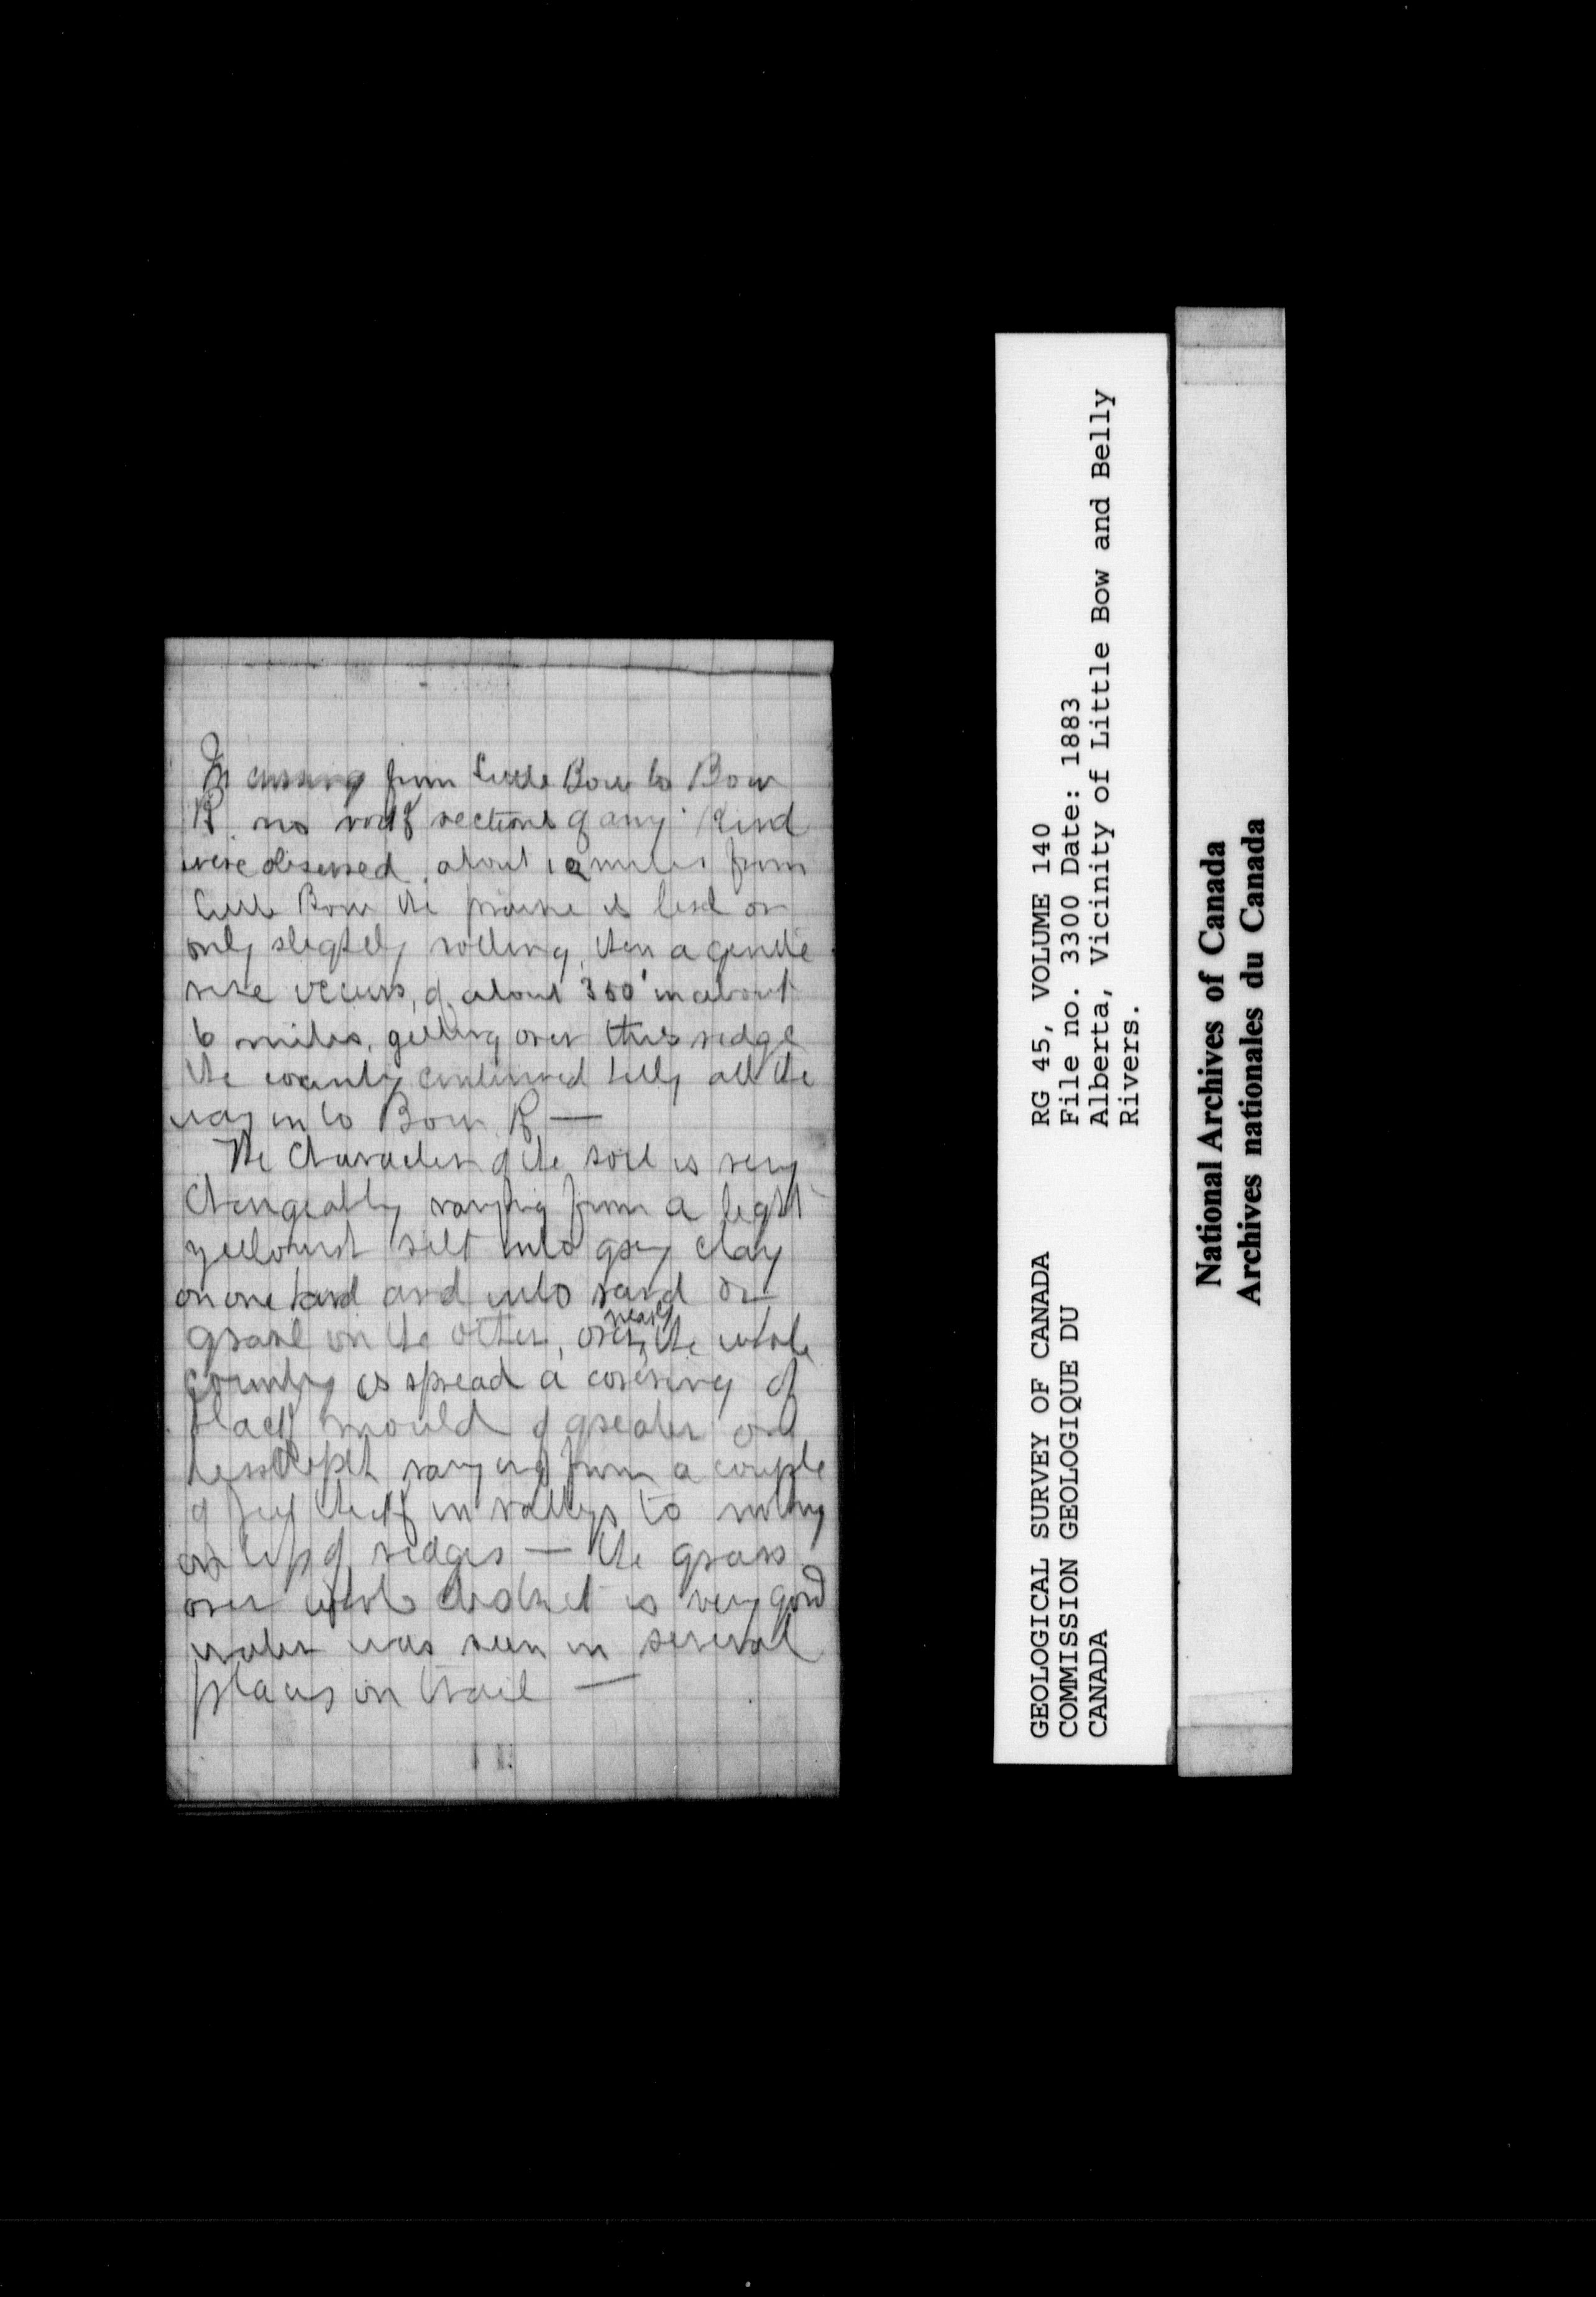 In crossing from Little Bow to Bow
R. no rock sections of any kind
were observed. about 12 miles from
Little Bow the prairie is level or
only slightly rolling, then a gentle
rise occurs, of about 350' in about
6 miles, getting over this ridge
the country continued hilly all the
way in to Bow R —
The Character of the soil is very
changeably varying from a light
yellowish silt into grey clay
on one hand and into sand or
gravel on the other, over nearly the whole
country is spread a covering of
black mould of greater or
less depth varying from a couple
of feet thick in valleys to nothing
on top of ridges — the grass
over whole district is very good
water was seen in several
places on trail —
GEOLOGICAL SURVEY OF CANADA
COMMISSION GEOLOGIQUE DU
CANADA
RG 45, VOLUME 140
File no. 3300 Date: 1883
Alberta, Vicinity of Little Bow and Belly
Rivers.
National Archives of Canada
Archives nationales du Canada